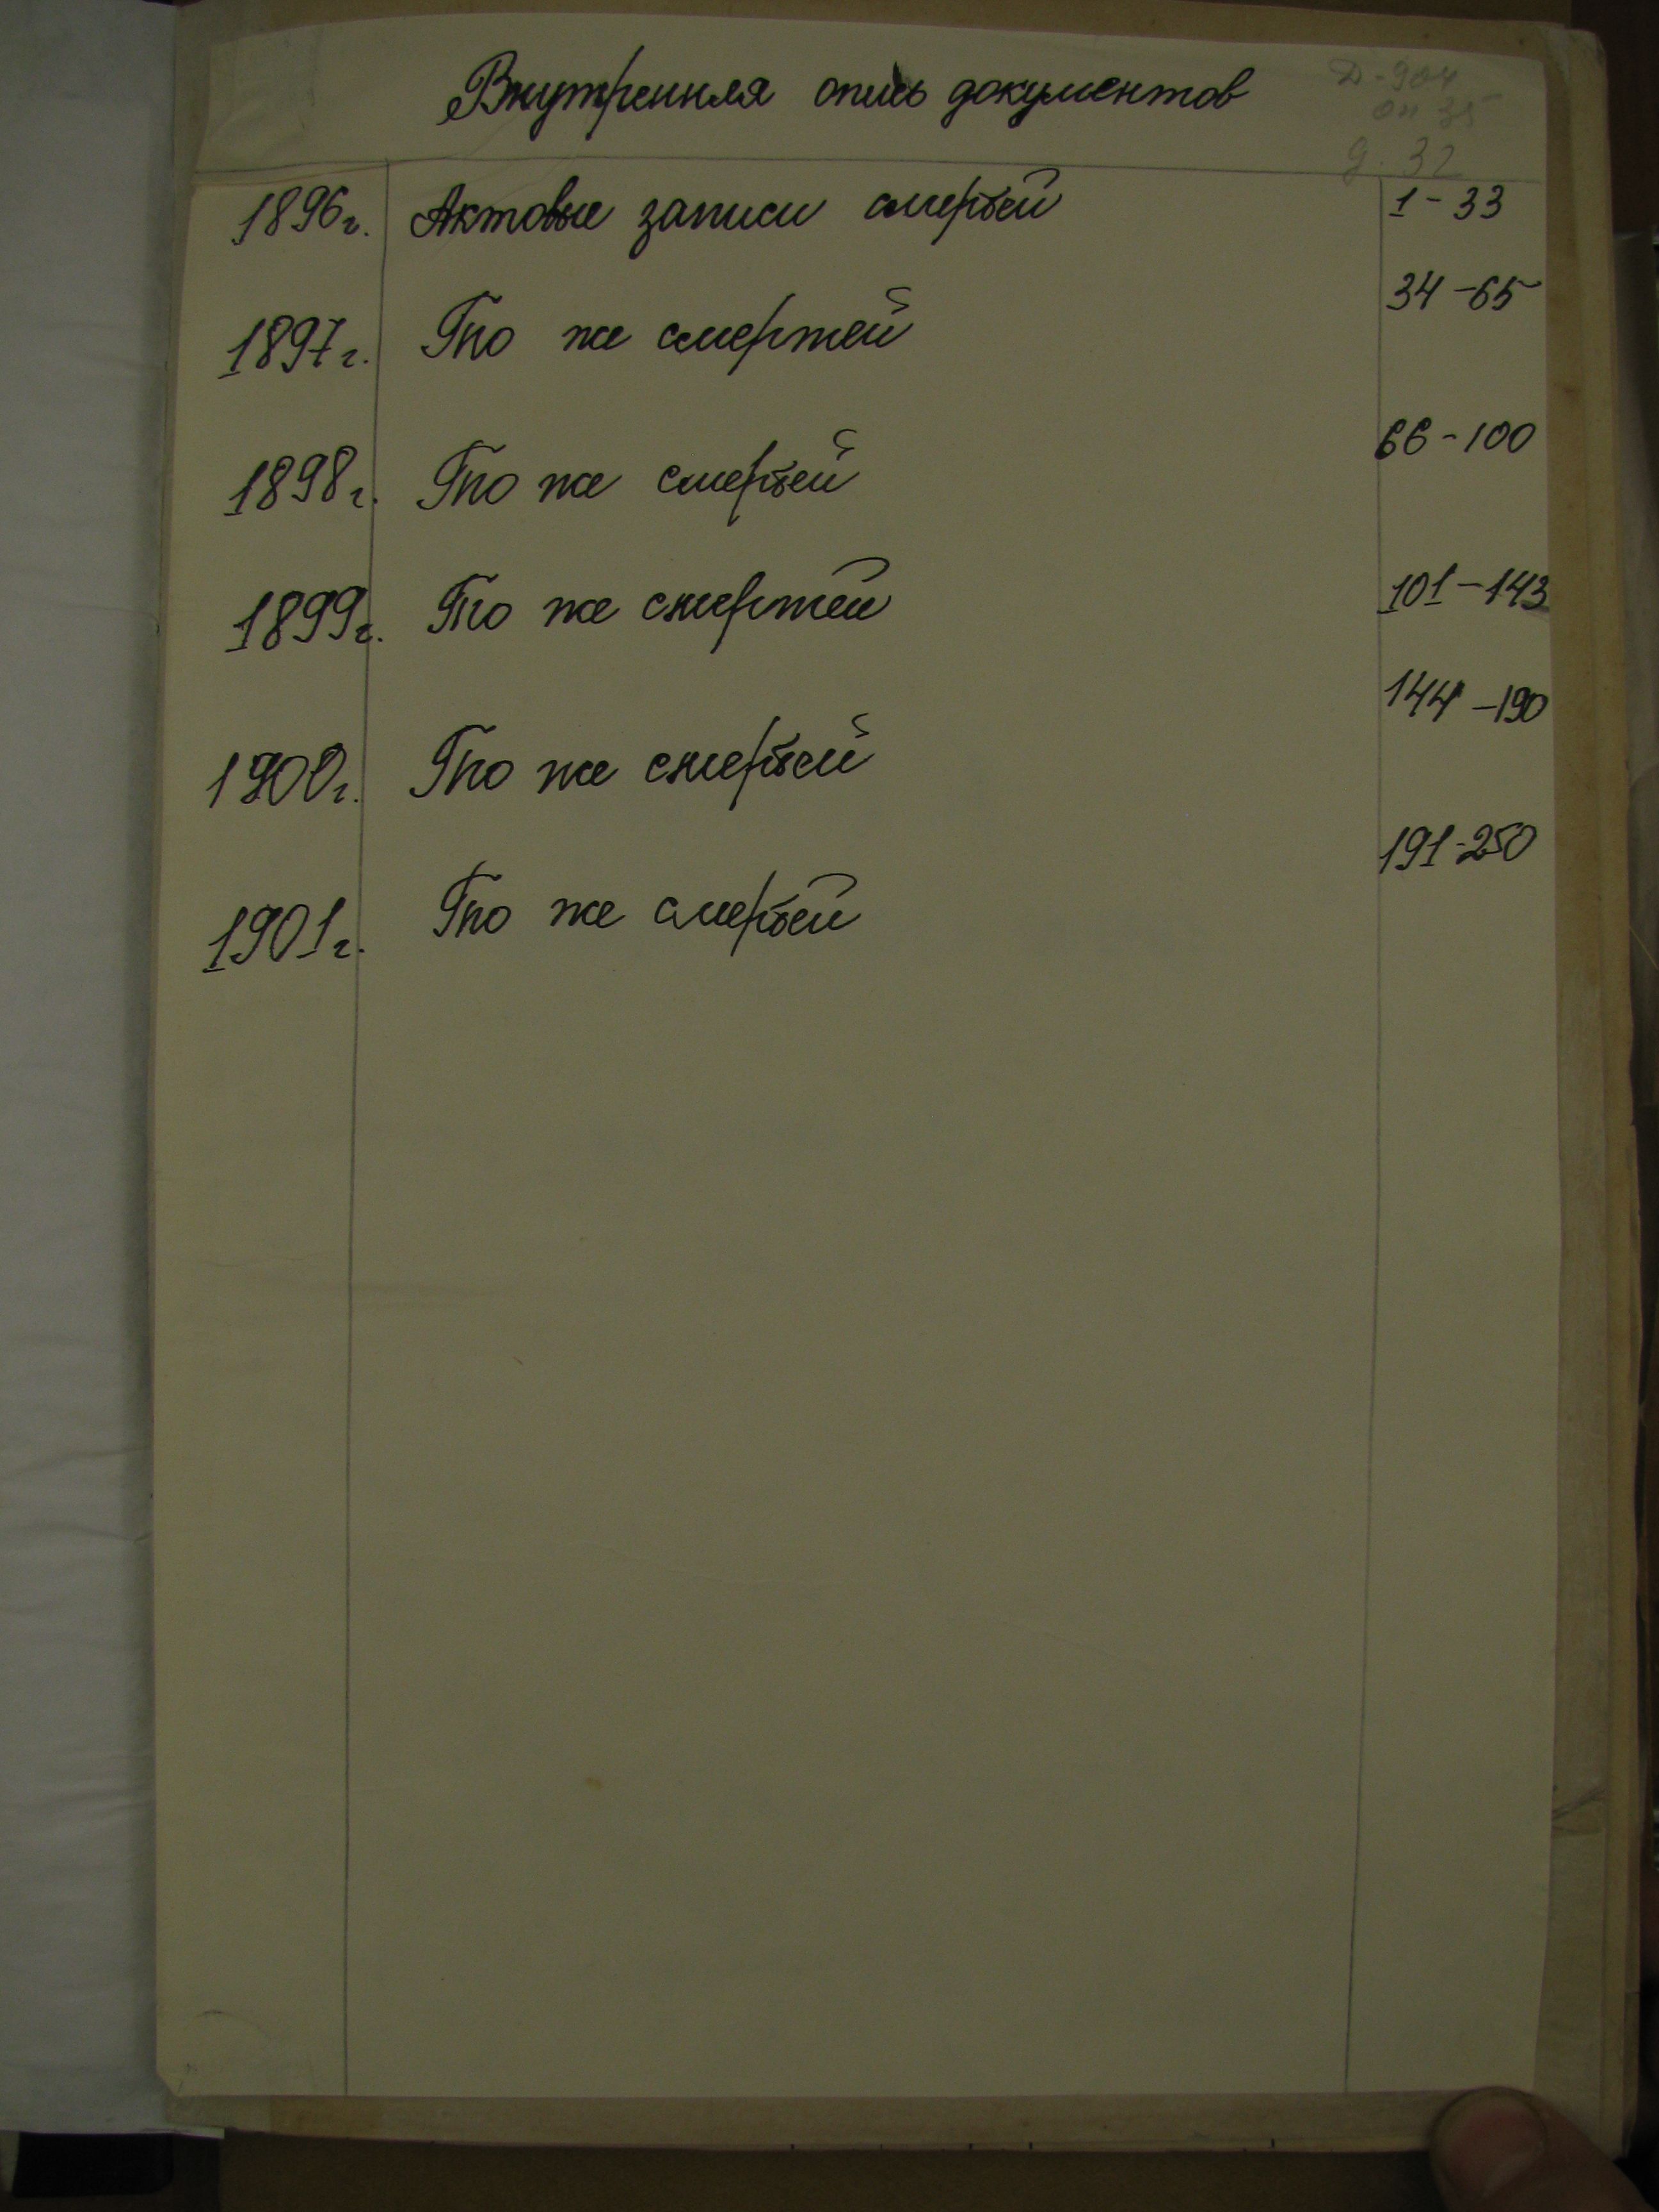 Внутренняя опись документов
Д-904
оп 35
д. 32
1896г. Актовые записи смертей 1-33
1897г. То же смертей 34-65
1898г. То же смертей 66-100
1899г. То же смертей 101-143
1900г. То же смертей 144-190
1901г. То же смертей 191-250